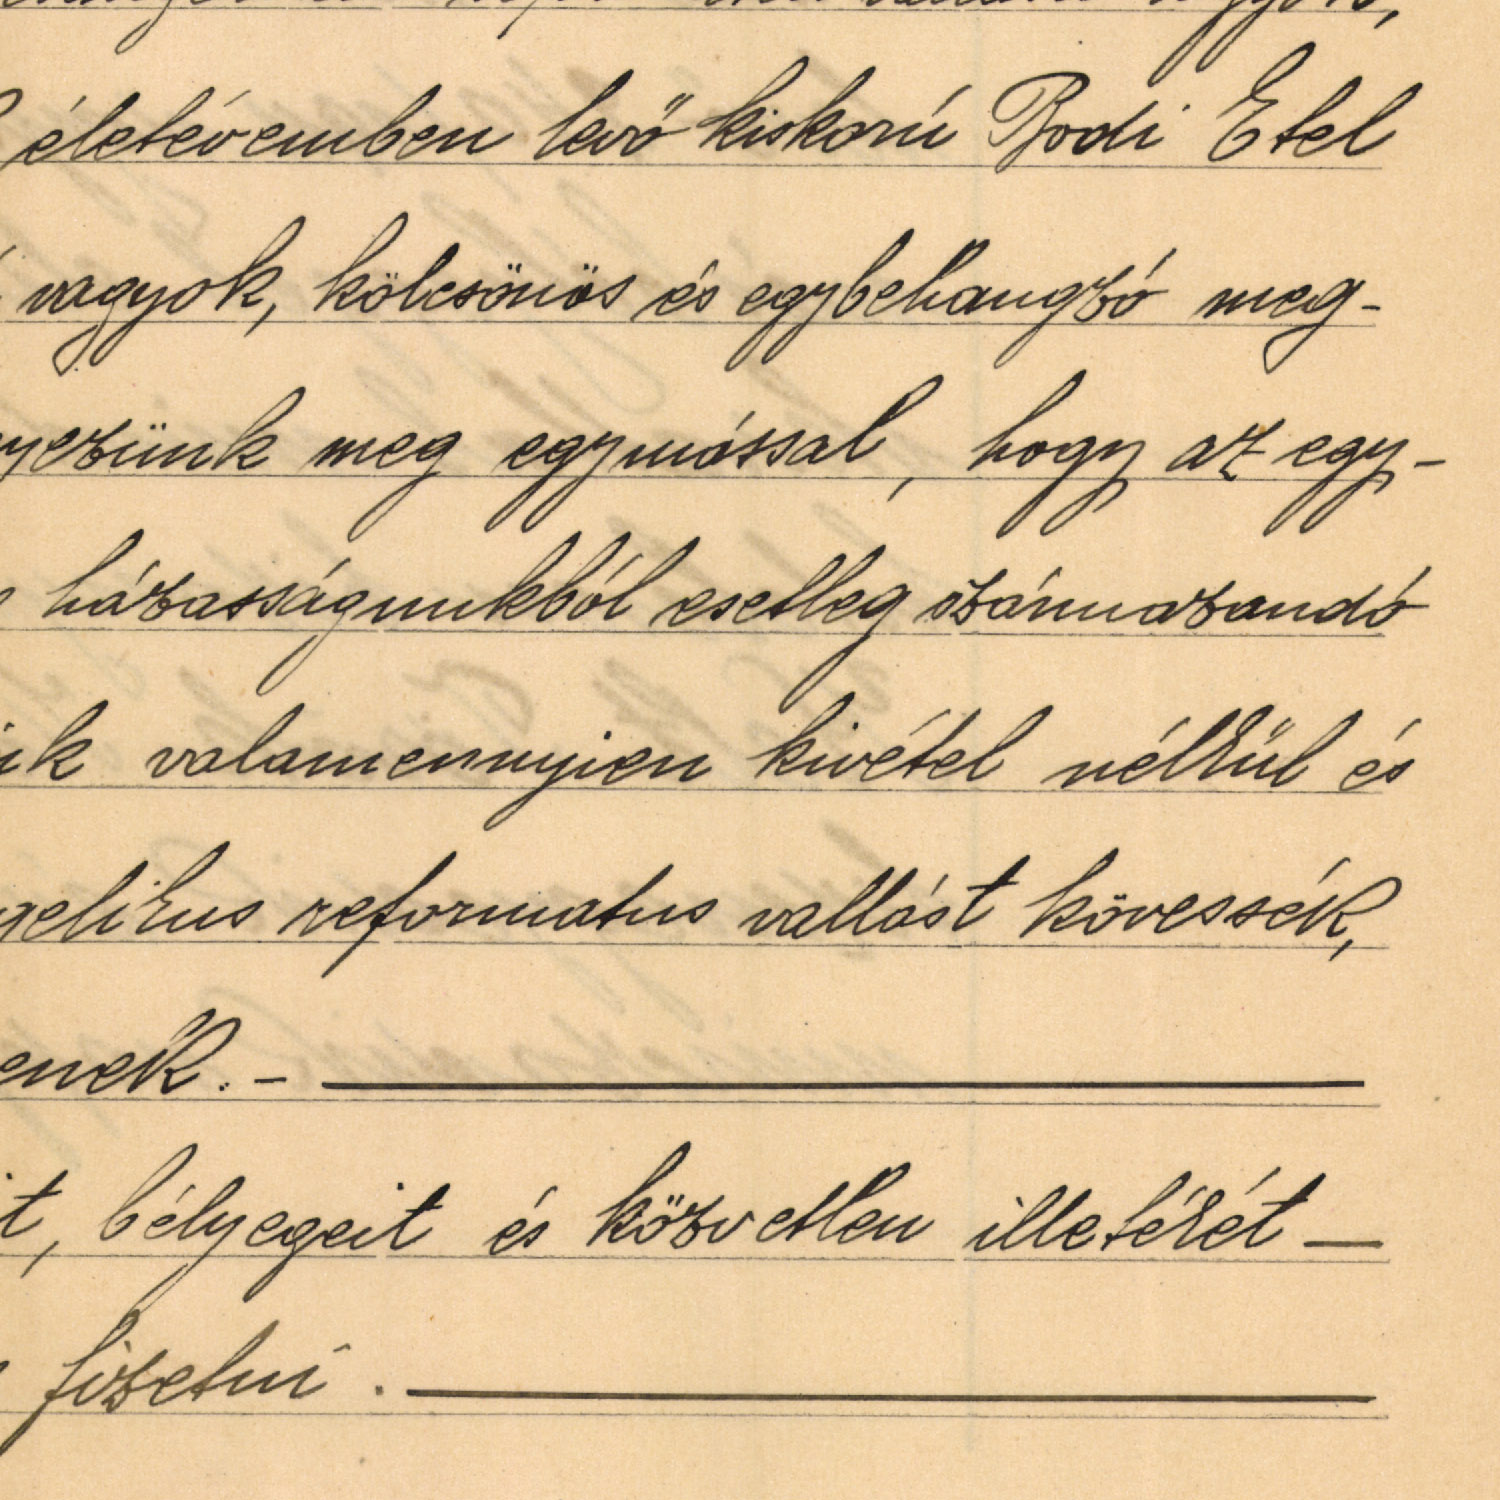 életévemben levő kiskorú Bodi Etel
vagyok, kölcsönös és egybehangzó meg-
yezünk meg egymással, hogy az egy-
házasságunkból esetleg származandó
ink valamennyien kivétel nélkül és
gelikus reformatus vallást kövessék,
enek. -
t, bélyegeit és közvetlen illetékét —
fizetni.